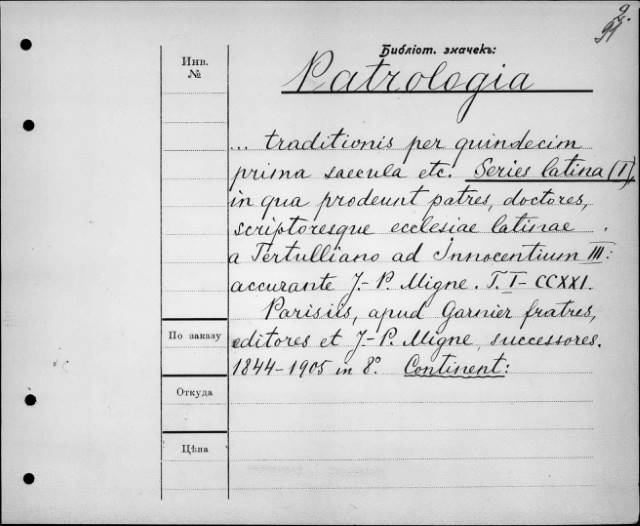 2.
91
Библіот. значекъ:
Инв.
№
Patrologia
... traditionis per quindecim
prima saecula etc. Series latina (I),
in qua prodeunt patres, doctores,
scriptoresque ecclesiae latinae
a Tertulliano ad Innocentium III:
accurante J.-P. Migne. T. I-CCXXI.
Parisiis, apud Garnier fratres,
По заказу
editores et J.-P. Migne, successores.
1844-1905 in 8°. Continent:
Откуда
Цѣна